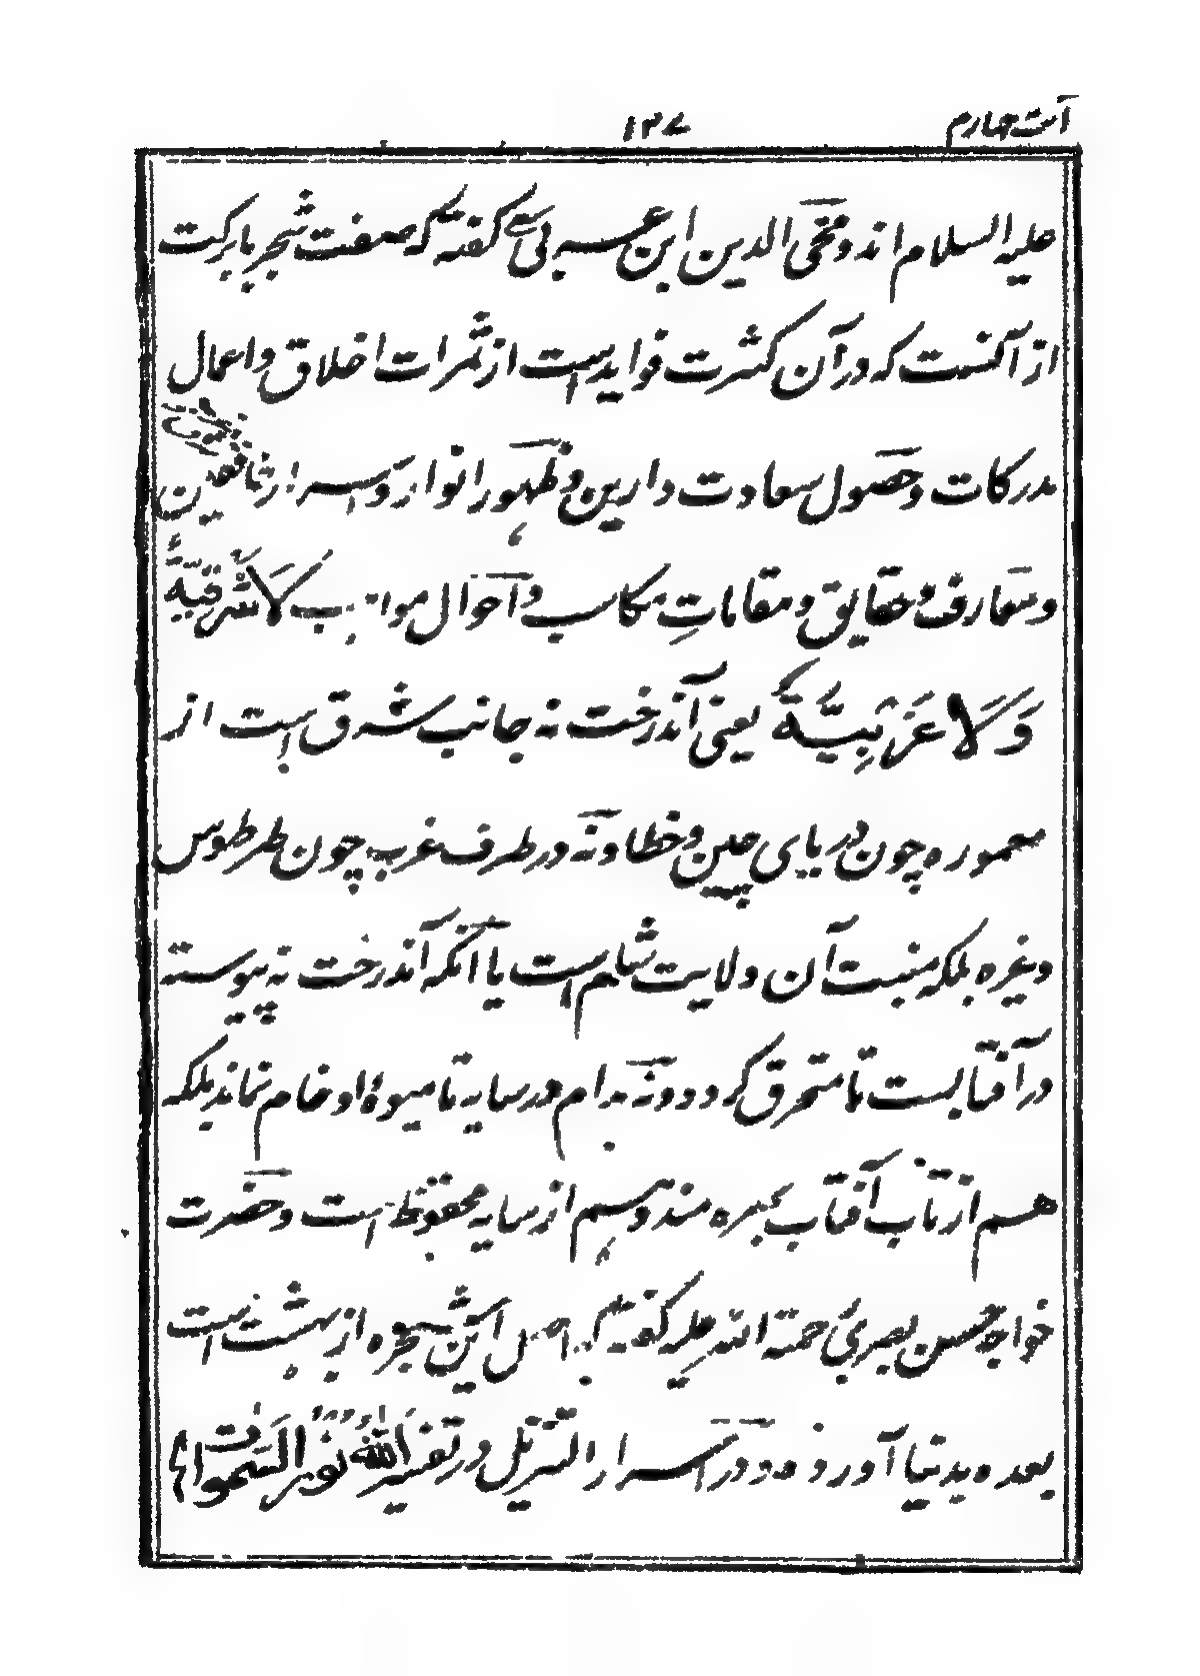 آیت چهارم ۱۳۷
علیه السلام اند و محی الدین ابن عربی گفته که صفت شجر بابرکت
از آنست که در آن کثرت فوایدست از ثمرات اخلاق و اعمال
مدرکات و حصول سعادت دارین و ظهور انوار و اسرار
و معارف و حقایق و مقامات مکاسب و احوال مواهب لَا شَرْقِیَّةٍ
وَلَا غَرْبِیَّةٍ یعنی آندرخت نه جانب شرق است از
معموره چون دریای چین و خطا و نه در طرف غرب چون طرطوس
و غیره بلکه منبت آن ولایت شام است یا آنکه آندرخت نه پیوسته
در آفتابست تا محترق گردد و نه مدام در سایه تا میوهٔ او خام نماند بلکه
هم از تاب آفتاب بهره مند و هم از سایه محفوظ است و حضرت
خواجه حسن بصری رحمة الله علیه گفته اصل این شجره از بهشت است
بعده بدنیا آورده و در اسرار التنزیل در تفسیر اَللهُ نُورُ السَّمٰوَاتِ